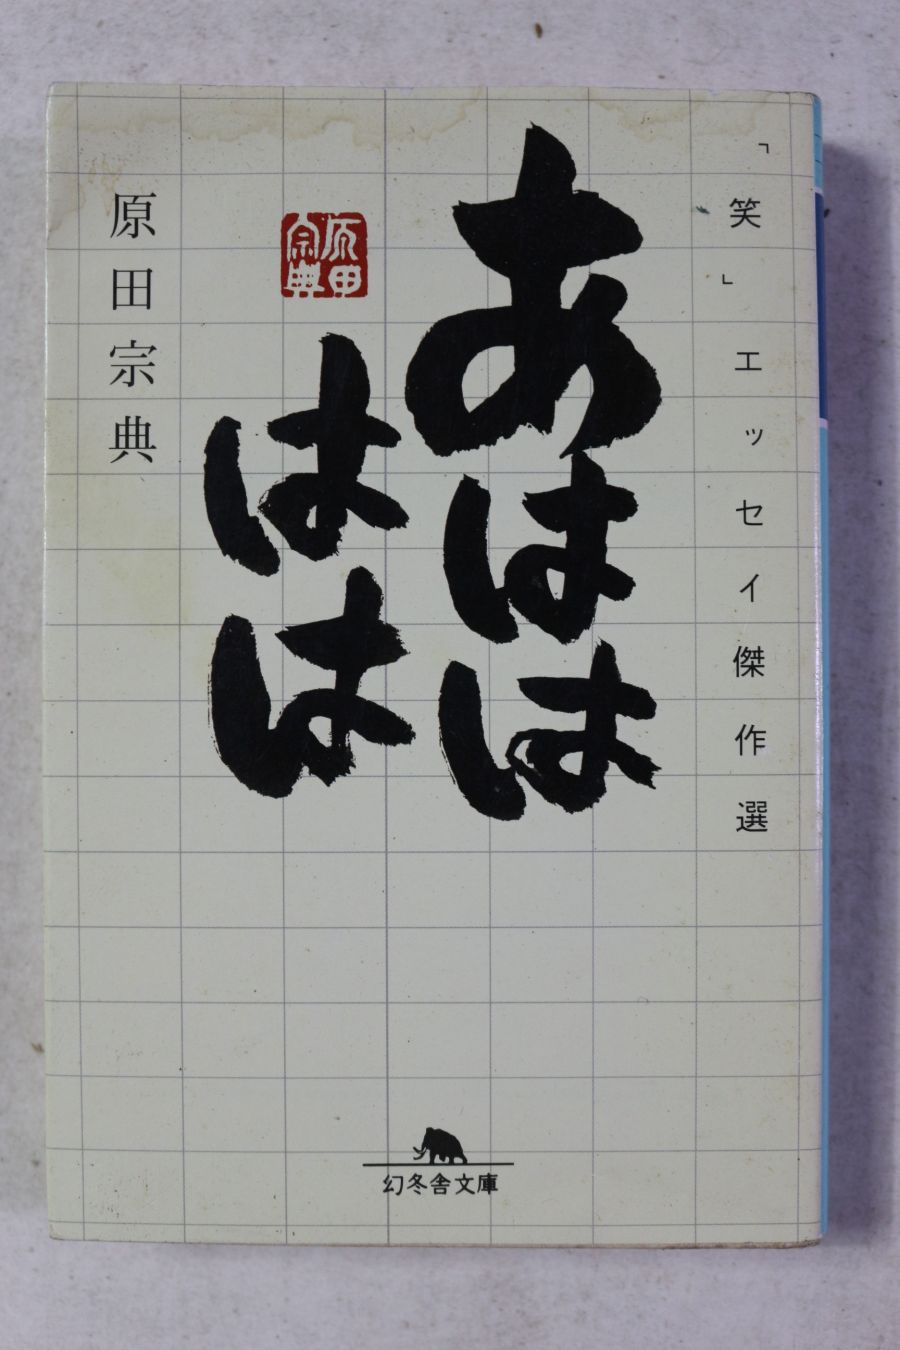 「笑」エッセイ傑作選
あはは
はは
原田宗典
原田
宗典
幻冬舎文庫